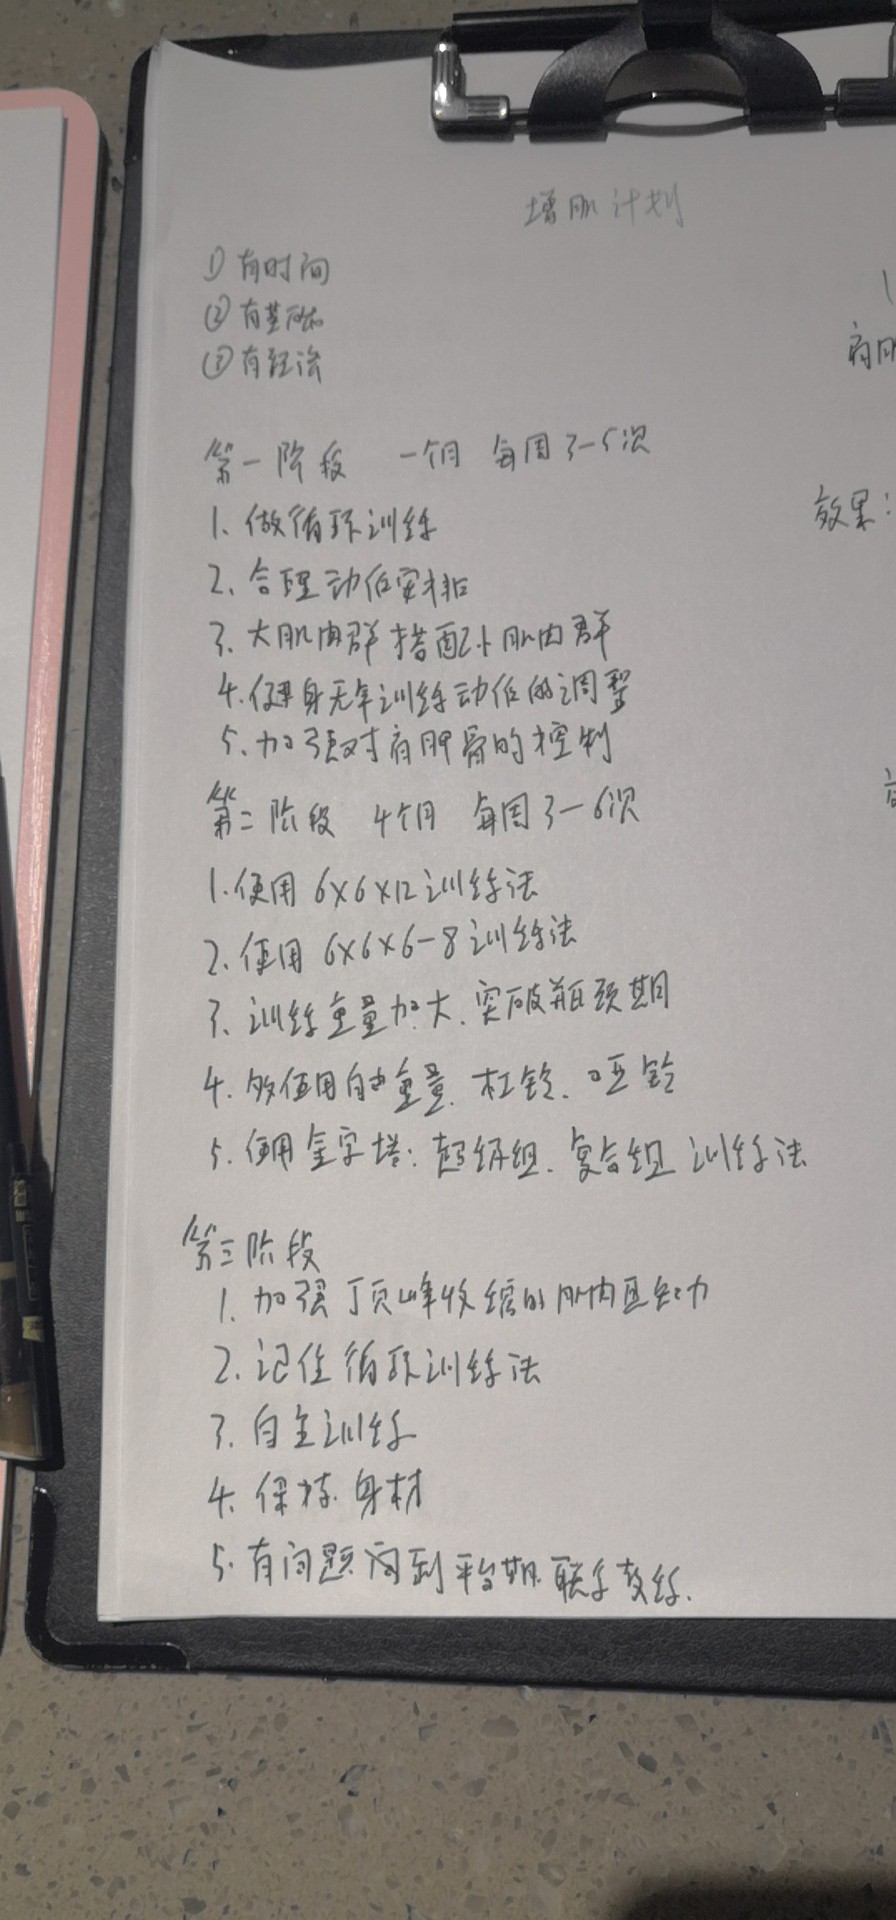 增肌计划
① 有时间
② 有基础
③ 有经济
第一阶段 一个月 每周3-5次
1. 做循环训练
2. 合理动作安排
3. 大肌肉群搭配小肌肉群
4. 健身房训练动作的调整
5. 加强对肩胛骨的控制
效果：
第二阶段 4个月 每周3-6次
1. 使用6×6×12训练法
2. 使用6×6×6-8训练法
3. 训练重量加大、突破瓶颈期
4. 多使用自由重量、杠铃、哑铃
5. 使用金字塔：超级组、复合组 训练法
第三阶段
1. 加强顶峰收缩的肌肉
2. 记住循环训练法
3. 自主训练
4. 保持身材
5. 有问题 到平台期 联系教练.